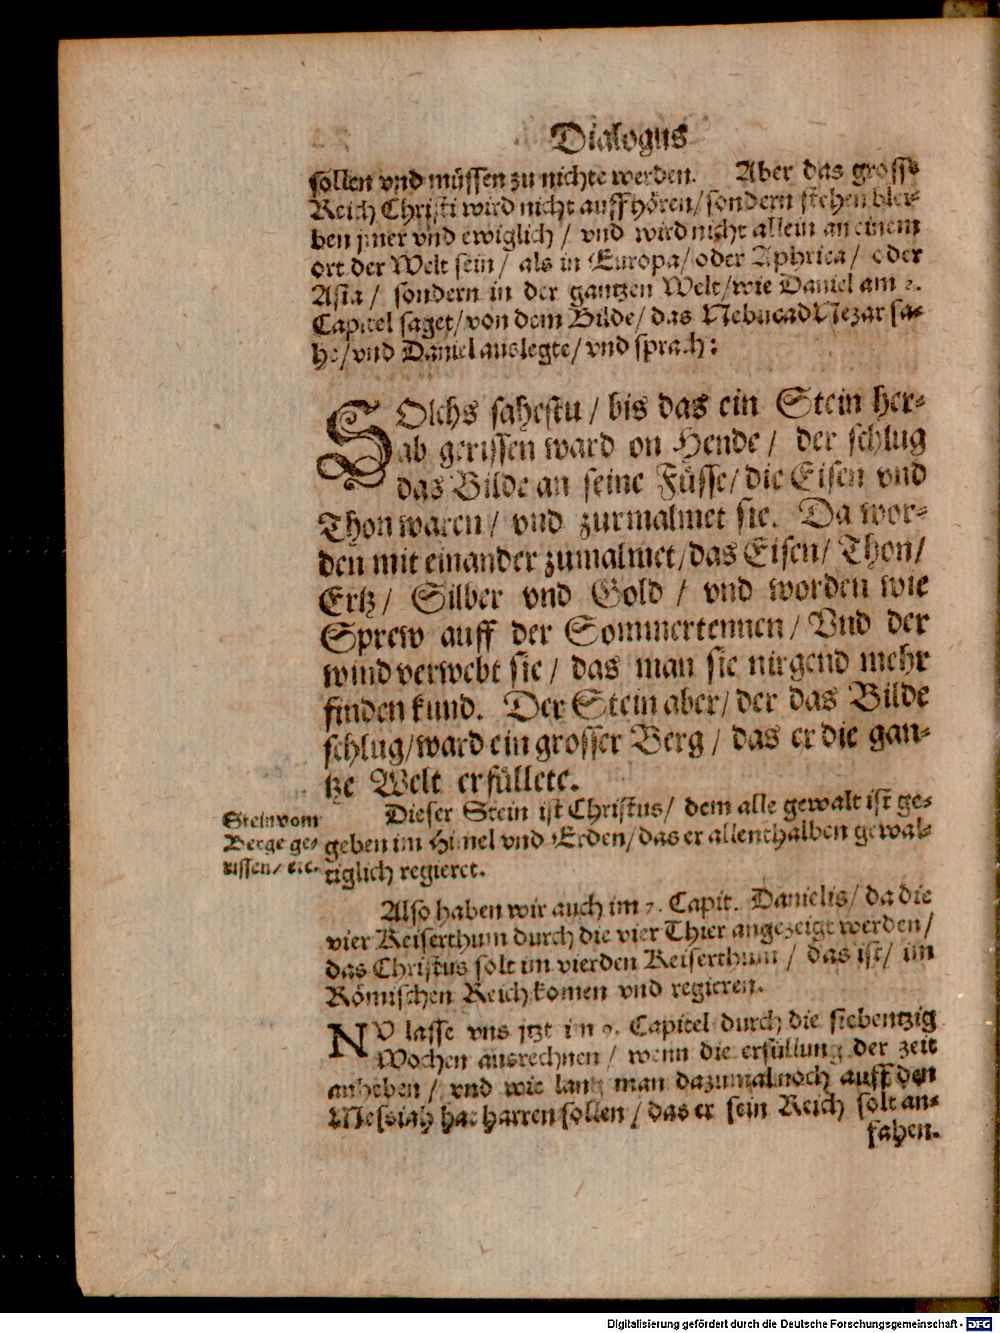 Dialogus
sollen vnd müssen zu nichte werden. Aber das grosse
Reich Christi wird nicht auffhören/ sondern stehen blei-
ben jmer vnd ewiglich/ vnd wird nicht allein an einem
ort der Welt sein/ als in Europa/ oder Aphrica/ oder
Asia/ sondern in der gantzen Welt/ wie Daniel am 2.
Capitel saget/ von dem Bilde/ das NebucadNezar sa-
he/ vnd Daniel auslegte/ vnd sprach:
SOlchs sahestu/ bis das ein Stein her-
ab gerissen ward on Hende/ der schlug
das Bilde an seine Füsse/ die Eisen vnd
Thon waren/ vnd zurmalmet sie. Da wor-
den mit einander zumalmet/ das Eisen/ Thon/
Ertz/ Silber vnd Gold/ vnd worden wie
Sprew auff der Sommertennen/ Vnd der
wind verwebt sie/ das man sie nirgend mehr
finden kund. Der Stein aber/ der das Bilde
schlug/ ward ein grosser Berg/ das er die gan-
tze Welt erfüllete.
Stein vom
Berge ge-
rissen/ etc.
Dieser Stein ist Christus/ dem alle gewalt ist ge-
geben im Himel vnd Erden/ das er allenthalben gewal-
tiglich regieret.
Also haben wir auch im 7. Capit. Danielis/ da die
vier Keiserthum durch die vier Thier angezeigt werden/
das Christus solt im vierden Keiserthum/ das ist/ im
Römischen Reich komen vnd regieren.
NV lasse vns jtzt im 9. Capitel durch die siebentzig
Wochen ausrechnen/ wenn die erfüllung der zeit
anheben/ vnd wie lang man dazumal noch auff den
Messiah hat harren sollen/ das er sein Reich solt an-
fahen.
Digitalisierung gefördert durch die Deutsche Forschungsgemeinschaft - DFG